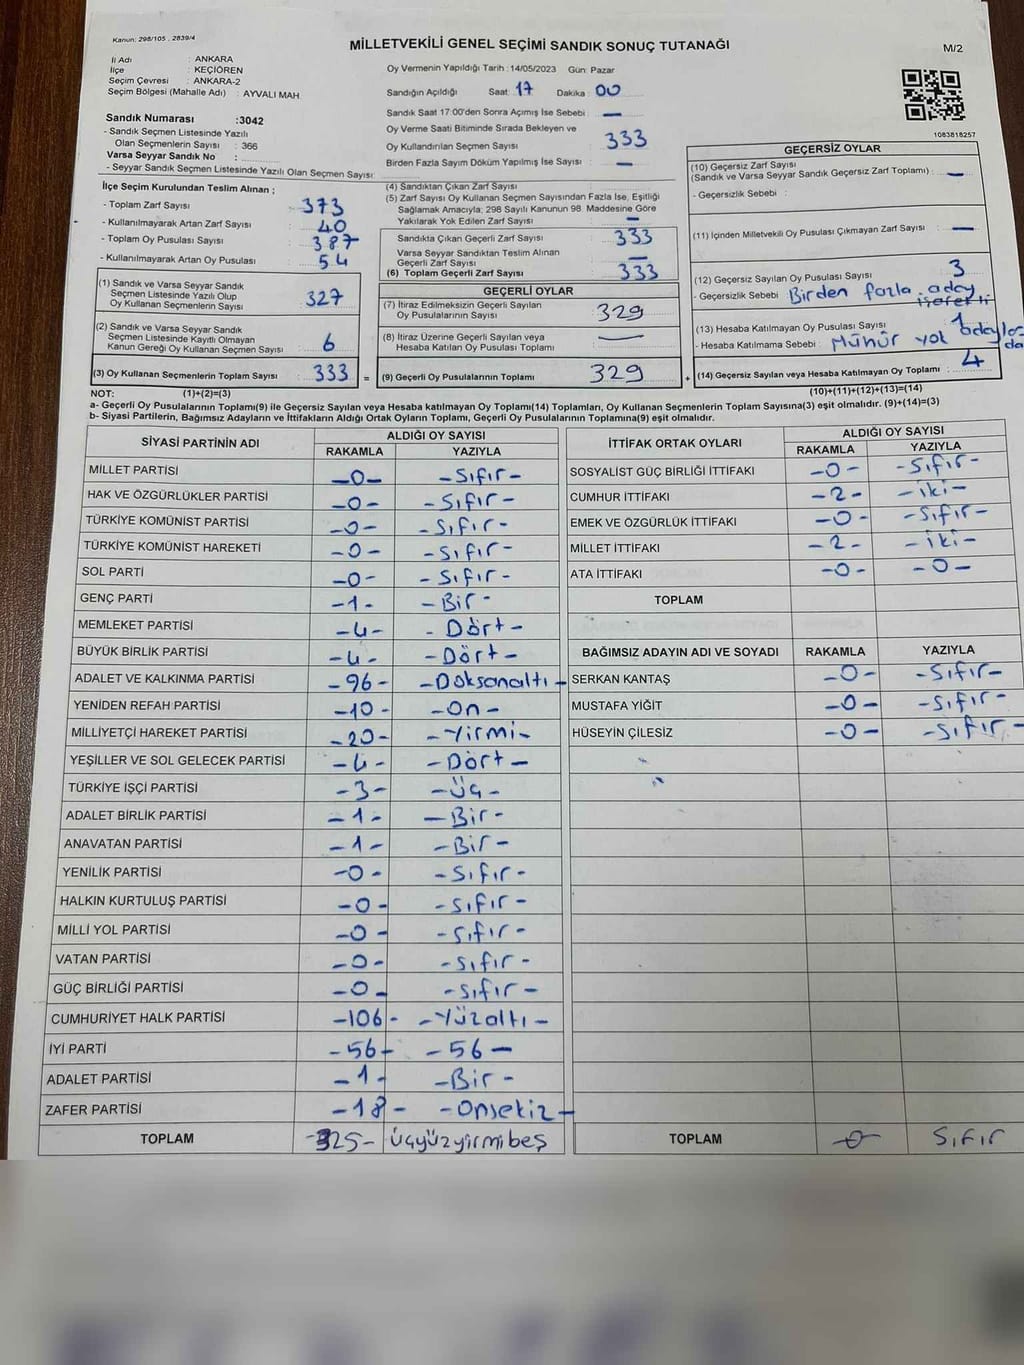 Kanun: 298/105 , 2839/4
MİLLETVEKİLİ GENEL SEÇİMİ SANDIK SONUÇ TUTANAĞI
M/2
İl Adı : ANKARA
İlçe : KEÇİÖREN
Seçim Çevresi : ANKARA-2
Seçim Bölgesi (Mahalle Adı) : AYVALI MAH.
Oy Vermenin Yapıldığı Tarih : 14/05/2023 Gün: Pazar
Sandığın Açıldığı Saat: 17 Dakika: 00
Sandık Saat 17:00'den Sonra Açımış İse Sebebi : —
Oy Verme Saati Bitiminde Sırada Bekleyen ve
Oy Kullandırılan Seçmen Sayısı : 333
Birden Fazla Sayım Döküm Yapılmış İse Sayısı : —
1083818257
Sandık Numarası :3042
- Sandık Seçmen Listesinde Yazılı
Olan Seçmenlerin Sayısı : 366
Varsa Seyyar Sandık No :
- Seyyar Sandık Seçmen Listesinde Yazılı Olan Seçmen Sayısı:
İlçe Seçim Kurulundan Teslim Alınan ;
- Toplam Zarf Sayısı : 373
- Kullanılmayarak Artan Zarf Sayısı : 40
- Toplam Oy Pusulası Sayısı : 387
- Kullanılmayarak Artan Oy Pusulası : 54
(1) Sandık ve Varsa Seyyar Sandık
Seçmen Listesinde Yazılı Olup
Oy Kullanan Seçmenlerin Sayısı : 327
(2) Sandık ve Varsa Seyyar Sandık
Seçmen Listesinde Kayıtlı Olmayan
Kanun Gereği Oy Kullanan Seçmen Sayısı : 6
(3) Oy Kullanan Seçmenlerin Toplam Sayısı : 333 =
(4) Sandıktan Çıkan Zarf Sayısı :
(5) Zarf Sayısı Oy Kullanan Seçmen Sayısından Fazla İse, Eşitliği
Sağlamak Amacıyla, 298 Sayılı Kanunun 98. Maddesine Göre
Yakılarak Yok Edilen Zarf Sayısı : —
Sandıkta Çıkan Geçerli Zarf Sayısı : 333
Varsa Seyyar Sandıktan Teslim Alınan
Geçerli Zarf Sayısı : —
(6) Toplam Geçerli Zarf Sayısı : 333
GEÇERLİ OYLAR
(7) İtiraz Edilmeksizin Geçerli Sayılan
Oy Pusulalarının Sayısı : 329
(8) İtiraz Üzerine Geçerli Sayılan veya
Hesaba Katılan Oy Pusulası Toplamı : —
(9) Geçerli Oy Pusulalarının Toplamı : 329 +
GEÇERSİZ OYLAR
(10) Geçersiz Zarf Sayısı
(Sandık ve Varsa Seyyar Sandık Geçersiz Zarf Toplamı) : —
- Geçersizlik Sebebi :
(11) İçinden Milletvekili Oy Pusulası Çıkmayan Zarf Sayısı : —
(12) Geçersiz Sayılan Oy Pusulası Sayısı : 3
- Geçersizlik Sebebi : Birden fazla aday
(13) Hesaba Katılmayan Oy Pusulası Sayısı : 1
- Hesaba Katılmama Sebebi : Mühür yok
(14) Geçersiz Sayılan veya Hesaba Katılmayan Oy Toplamı : 4
NOT: (1)+(2)=(3)
(10)+(11)+(12)+(13)=(14)
a- Geçerli Oy Pusulalarının Toplamı(9) ile Geçersiz Sayılan veya Hesaba katılmayan Oy Toplamı(14) Toplamları, Oy Kullanan Seçmenlerin Toplam Sayısına(3) eşit olmalıdır. (9)+(14)=(3)
b- Siyasi Partilerin, Bağımsız Adayların ve İttifakların Aldığı Ortak Oyların Toplamı, Geçerli Oy Pusulalarının Toplamına(9) eşit olmalıdır.
SİYASİ PARTİNİN ADI ALDIĞI OY SAYISI
RAKAMLA YAZIYLA
MİLLET PARTİSİ -0- -Sıfır-
HAK VE ÖZGÜRLÜKLER PARTİSİ -0- -Sıfır-
TÜRKİYE KOMÜNİST PARTİSİ -0- -Sıfır-
TÜRKİYE KOMÜNİST HAREKETİ -0- -Sıfır-
SOL PARTİ -0- -Sıfır-
GENÇ PARTİ -1- -Bir-
MEMLEKET PARTİSİ -4- -Dört-
BÜYÜK BİRLİK PARTİSİ -4- -Dört-
ADALET VE KALKINMA PARTİSİ -96- -Doksanaltı-
YENİDEN REFAH PARTİSİ -10- -On-
MİLLİYETÇİ HAREKET PARTİSİ -20- -Yirmi-
YEŞİLLER VE SOL GELECEK PARTİSİ -4- -Dört-
TÜRKİYE İŞÇİ PARTİSİ -3- -Üç-
ADALET BİRLİK PARTİSİ -1- -Bir-
ANAVATAN PARTİSİ -1- -Bir-
YENİLİK PARTİSİ -0- -Sıfır-
HALKIN KURTULUŞ PARTİSİ -0- -Sıfır-
MİLLİ YOL PARTİSİ -0- -Sıfır-
VATAN PARTİSİ -0- -Sıfır-
GÜÇ BİRLİĞİ PARTİSİ -0- -Sıfır-
CUMHURİYET HALK PARTİSİ -106- -Yüzaltı-
İYİ PARTİ -56- -56-
ADALET PARTİSİ -1- -Bir-
ZAFER PARTİSİ -18- -Onsekiz-
TOPLAM -325- üçyüzyirmibeş
İTTİFAK ORTAK OYLARI ALDIĞI OY SAYISI
RAKAMLA YAZIYLA
SOSYALİST GÜÇ BİRLİĞİ İTTİFAKI -0- -Sıfır-
CUMHUR İTTİFAKI -2- -iki-
EMEK VE ÖZGÜRLÜK İTTİFAKI -0- -Sıfır-
MİLLET İTTİFAKI -2- -iki-
ATA İTTİFAKI -0- -0-
TOPLAM
BAĞIMSIZ ADAYIN ADI VE SOYADI RAKAMLA YAZIYLA
SERKAN KANTAŞ -0- -Sıfır-
MUSTAFA YİĞİT -0- -Sıfır-
HÜSEYİN ÇİLESİZ -0- -Sıfır-
TOPLAM -0- Sıfır